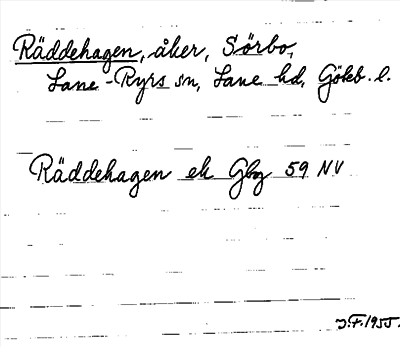 Räddehagen, åker, Sörbo,
Lane-Ryrs sn, Lane hd, Göteb. l.
Räddehagen ek Gbg 59 NV
J.F. 1955.